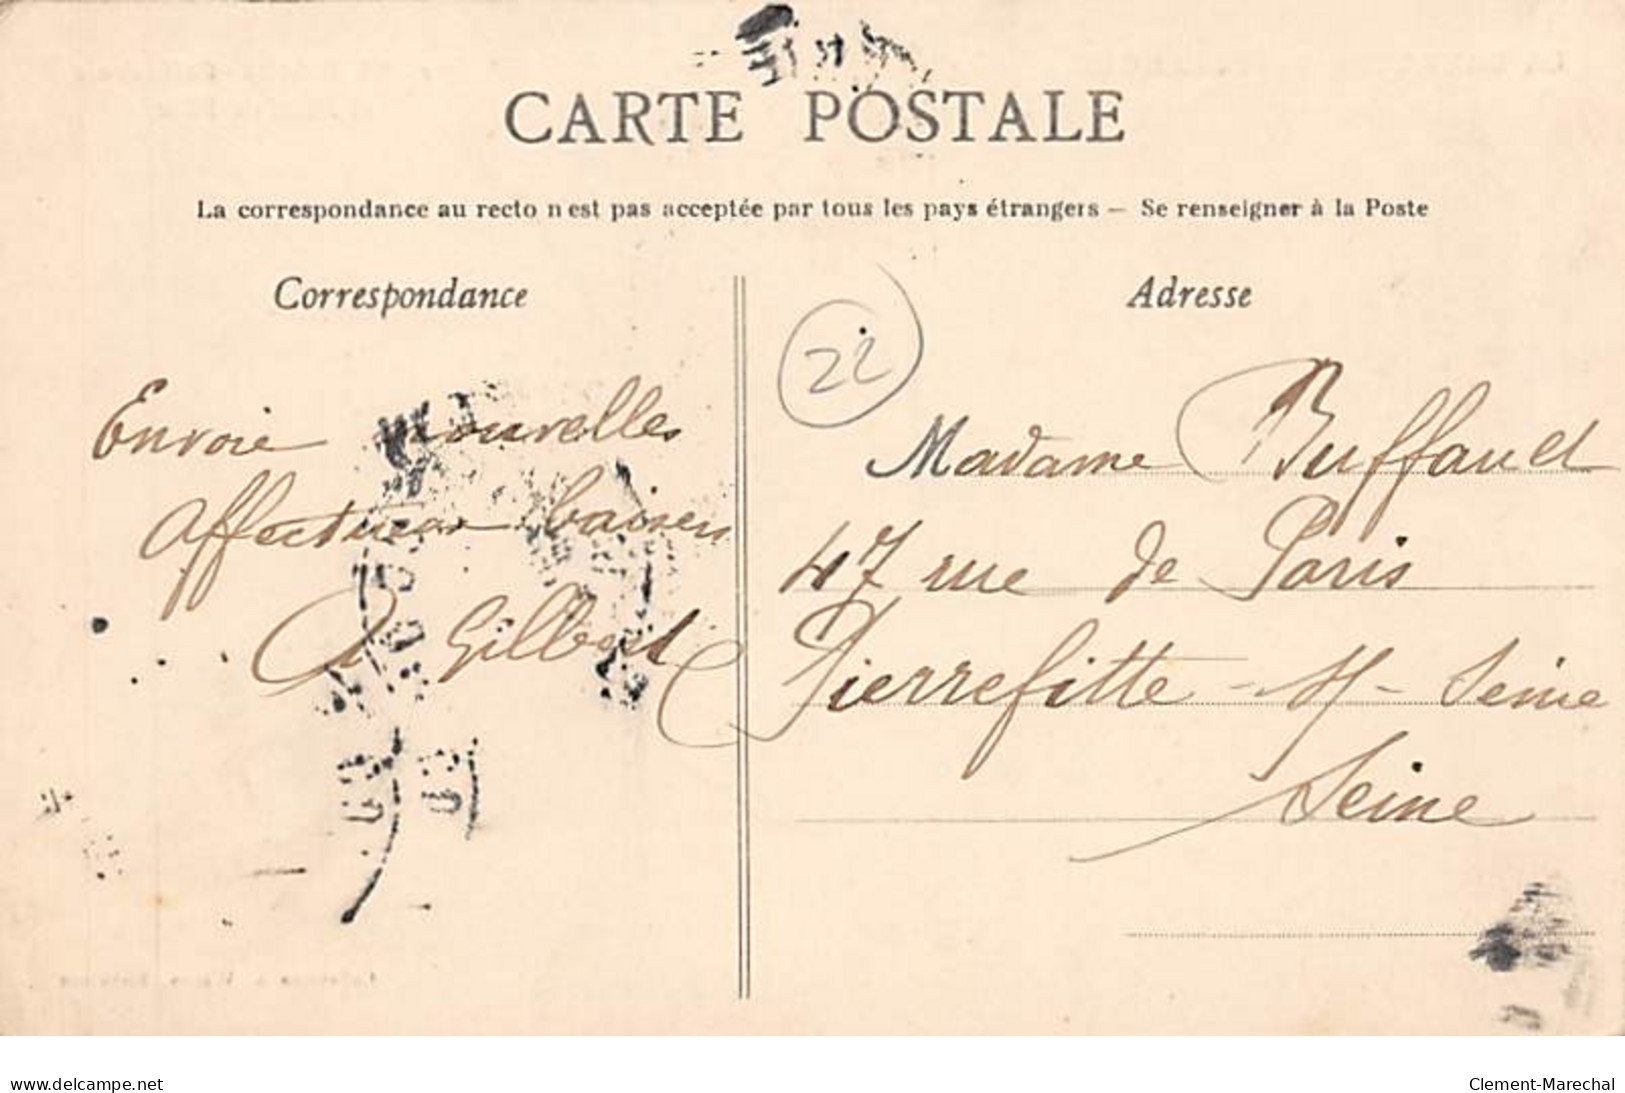 CARTE POSTALE
La correspondance au recto n'est pas acceptée par tous les pays étrangers — Se renseigner à la Poste
Correspondance
Envoie nouvelles
Affectueux baisers
A Gilbert
Adresse
22
Madame Buffaud
47 rue de Paris
Pierrefitte - s/- Seine
Seine
delcampe.net
Clement-Marechal